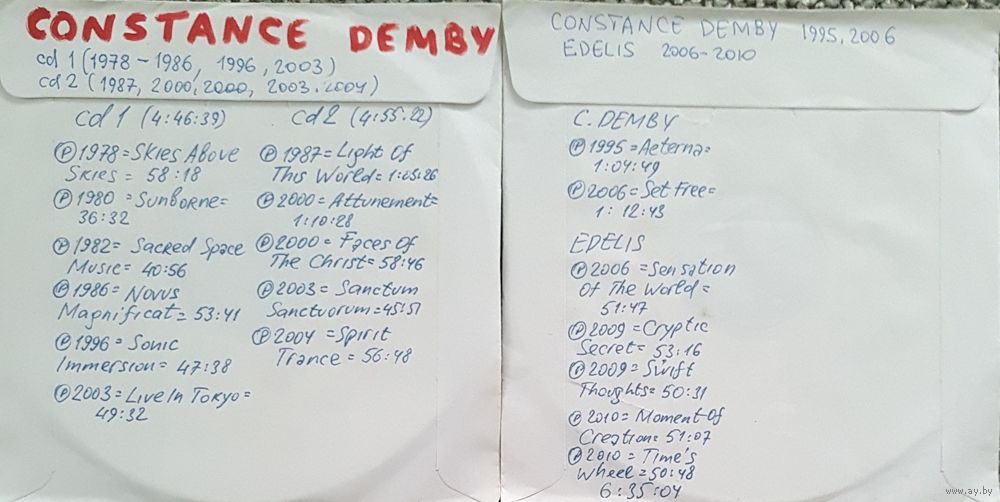 CONSTANCE DEMBY
cd 1 (1978 – 1986, 1996, 2003)
cd 2 (1987, 2000, 2000, 2003, 2004)
cd 1 (4:46:39)
Ⓟ 1978 = Skies Above
Skies = 58:18
Ⓟ 1980 = Sunborne =
36:32
Ⓟ 1982 = Sacred Space
Music = 40:56
Ⓟ 1986 = Novus
Magnificat = 53:41
Ⓟ 1996 = Sonic
Immersion = 47:38
Ⓟ 2003 = Live In Tokyo =
49:32
cd 2 (4:55:22)
Ⓟ 1987 = Light Of
This World = 1:05:26
Ⓟ 2000 = Attunement =
1:10:28
Ⓟ 2000 = Faces Of
The Christ = 58:46
Ⓟ 2003 = Sanctum
Sanctuorum = 45:51
Ⓟ 2004 = Spirit
Trance = 56:48
CONSTANCE DEMBY 1995, 2006
EDELIS 2006-2010
C. DEMBY
Ⓟ 1995 = Aeterna =
1:04:49
Ⓟ 2006 = Set Free =
1:12:43
EDELIS
Ⓟ 2006 = Sensation
Of The World =
51:47
Ⓟ 2009 = Cryptic
Secret = 53:16
Ⓟ 2009 = Swift
Thoughts = 50:31
Ⓟ 2010 = Moment Of
Creation = 51:07
Ⓟ 2010 = Time's
Wheel = 50:48
6:35:04
www.ay.by